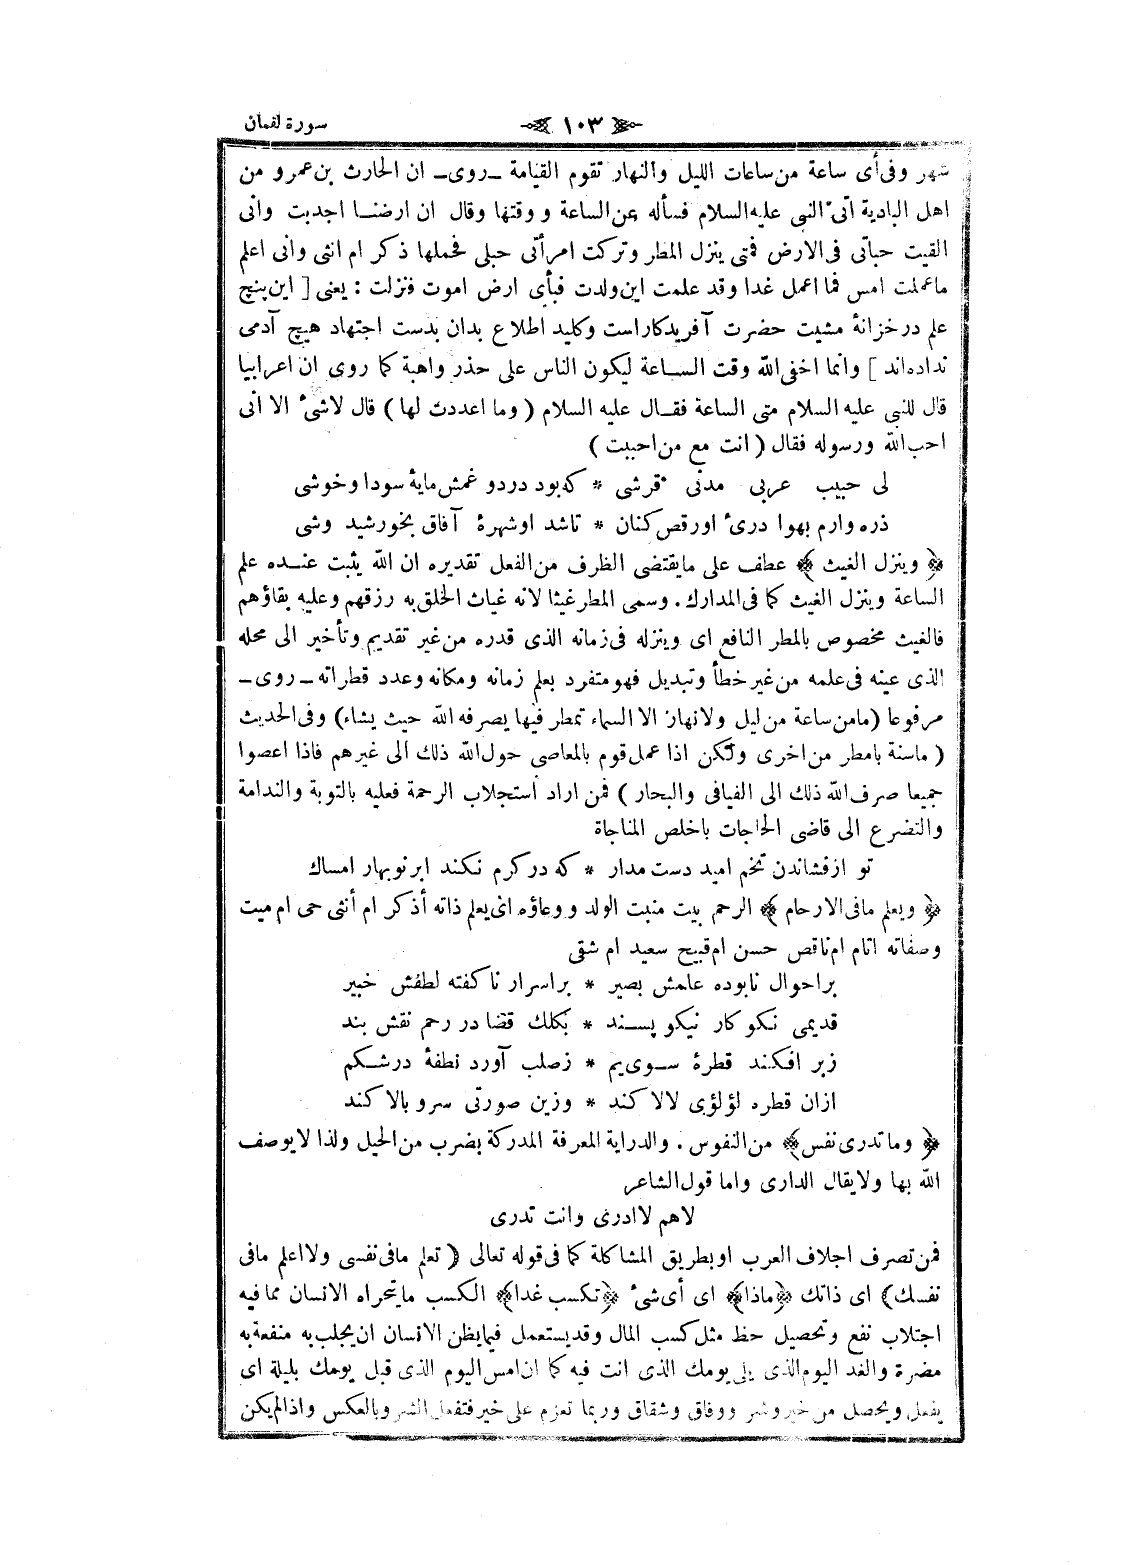 سورة لقمان
١٠٣
شهر وفى أى ساعة من ساعات الليل والنهار تقوم القيامة ـ روى ـ ان الحارث بن عمرو من
اهل البادية اتى النبى عليه السلام فسأله عن الساعة ووقتها وقال ان ارضنا اجدبت وانى
القيت حباتى فى الارض فمتى ينزل المطر وتركت امرأتى حبلى فحملها ذكر ام انثى وانى اعلم
ما عملت امس فما اعمل غدا وقد علمت اين ولدت فبأى ارض اموت فنزلت : يعنى [ اين پنج
علم در خزانهٔ مشيت حضرت آفريدكاراست وكليد اطلاع بدان بدست اجتهاد هيچ آدمى
نداده‌اند ] وانما اخفى الله وقت الساعة ليكون الناس على حذر واهبة كما روى ان اعرابيا
قال للنبى عليه السلام متى الساعة فقال عليه السلام ( وما اعددت لها ) قال لاشىء الا انى
احب الله ورسوله فقال ( انت مع من احببت )
لى حبيب عربى مدنى قرشى * كه بود دردو غمش مايهٔ سودا وخوشى
ذره وارم بهوا درىء اورقص كنان * تاشد اوشهرهٔ آفاق بخورشيد وشى
﴿ وينزل الغيث ﴾ عطف على مايقتضى الظرف من الفعل تقديره ان الله يثبت عنده علم
الساعة وينزل الغيث كما فى المدارك . وسمى المطر غيثا لانه غياث الخلق به رزقهم وعليه بقاؤهم
فالغيث مخصوص بالمطر النافع اى وينزله فى زمانه الذى قدره من غير تقديم وتأخير الى محله
الذى عينه فى علمه من غير خطأ وتبديل فهو متفرد بعلم زمانه ومكانه وعدد قطراته ـ روى ـ
مرفوعا ( مامن ساعة من ليل ولانهار الا السماء تمطر فيها يصرفه الله حيث يشاء ) وفى الحديث
( ماسنة بامطر من اخرى ولكن اذا عمل قوم بالمعاصى حول الله ذلك الى غيرهم فاذا اعصوا
جميعا صرف الله ذلك الى الفيافى والبحار ) فمن اراد استجلاب الرحمة فعليه بالتوبة والندامة
والتضرع الى قاضى الحاجات باخلص المناجاة
تو ازفشاندن تخم اميد دست مدار * كه در كرم نكند ابر نوبهار امساك
﴿ ويعلم مافى الارحام ﴾ الرحم بيت منبت الولد ووعاؤه اى يعلم ذاته أذكر ام أنثى حى ام ميت
وصفاته اتام ام ناقص حسن ام قبيح سعيد ام شقى
براحوال نابوده علمش بصير * براسرار ناكفته لطفش خبير
قديمى نكو كار نيكو پسند * بكلك قضا در رحم نقش بند
زبر افكند قطرهٔ سوى يم * زصلب آورد نطفهٔ درشكم
ازان قطره لؤلؤى لالا كند * وزين صورتى سرو بالا كند
﴿ وما تدرى نفس ﴾ من النفوس . والدراية المعرفة المدركة بضرب من الحيل ولذا لايوصف
الله بها ولايقال الدارى واما قول الشاعر
لاهم لاادرى وانت تدرى
فمن تصرف اجلاف العرب اوبطريق المشاكلة كما فى قوله تعالى ( تعلم مافى نفسى ولااعلم مافى
نفسك ) اى ذاتك ﴿ ماذا ﴾ اى أى شىء ﴿ تكسب غدا ﴾ الكسب مايتحراه الانسان مما فيه
اجتلاب نفع وتحصيل حظ مثل كسب المال وقد يستعمل فيما يظن الانسان ان يجلب به منفعة به
مضرة والغد اليوم الذى يلى يومك الذى انت فيه كما ان امس اليوم الذى قبل يومك بليلة اى
يفعل ويحصل من خير وشر ووفاق وشقاق وربما تعزم على خير فتفعل الشر وبالعكس واذا لم يكن